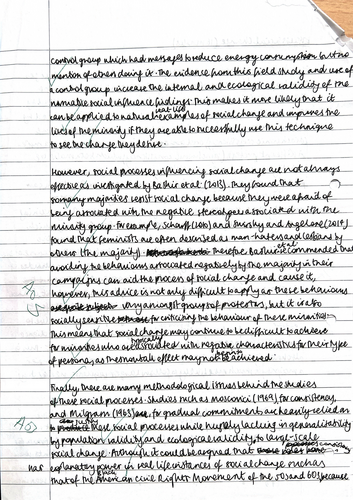 control group which had messages to reduce energy consumption but no
mention of others doing it. The evidence from this field study and use of
a control group increase the internal and ecological validity of the
normative social influence findings. This makes it more likely that it
real-life
can be applied to natural examples of social change and improves the
lives of the minority if they are able to successfully use this technique
to see the change they desire.
However, social processes influencing social change are not always
effective as investigated by Bashir et al. (2013). They found that
some majorities resist social change because they were afraid of
being associated with the negative stereotypes associated with the
minority group. For example, Scharff (2010) and Swirsky and Angelone (2014)
found that feminists are often described as man-haters and lesbians by
others (the majority). Therefore, Bashir et al recommended that
avoiding the behaviours associated negatively by the majority in their
campaigns can aid the process of social change and cause it,
however, this advice is not only difficult to apply as these behaviours
vary amongst groups of protesters, but it is also
AO3
socially sensitive for criticising the behaviour of these minorities.
This means that social change may continue to be difficult to achieve
typically
for minorities who are associated with negative characteristics for their type
of persona, as the snowball effect may not be achieved.
Finally, there are many methodological issues behind the studies
of these social processes. Studies such as Moscovici (1969), for consistency,
and Milgram (1963), for gradual commitment, are heavily relied on
AO3
to these social processes while hugely lacking in generalisability
by population validity and ecological validity to large-scale
social change. Although it could be argued that
has explanatory power in real life instances of social change such as
that of the American Civil Rights Movement of the 50s and 60s because